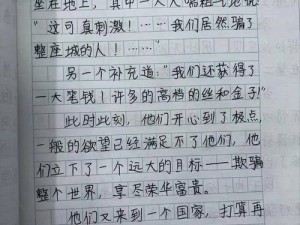 坐在地上，其中一人
"这可真刺激！……我们居然骗了
整座城的人！……"
另一个补充道："我们还获得了
一大笔钱！许多的高档的丝和金子！"
此时此刻，他们开心到了极点，
一般的欲望已经满足不了他们，他
们立下了一个远大的目标——欺骗
整个世界，享尽荣华富贵。
他们又来到一个国家，打算再